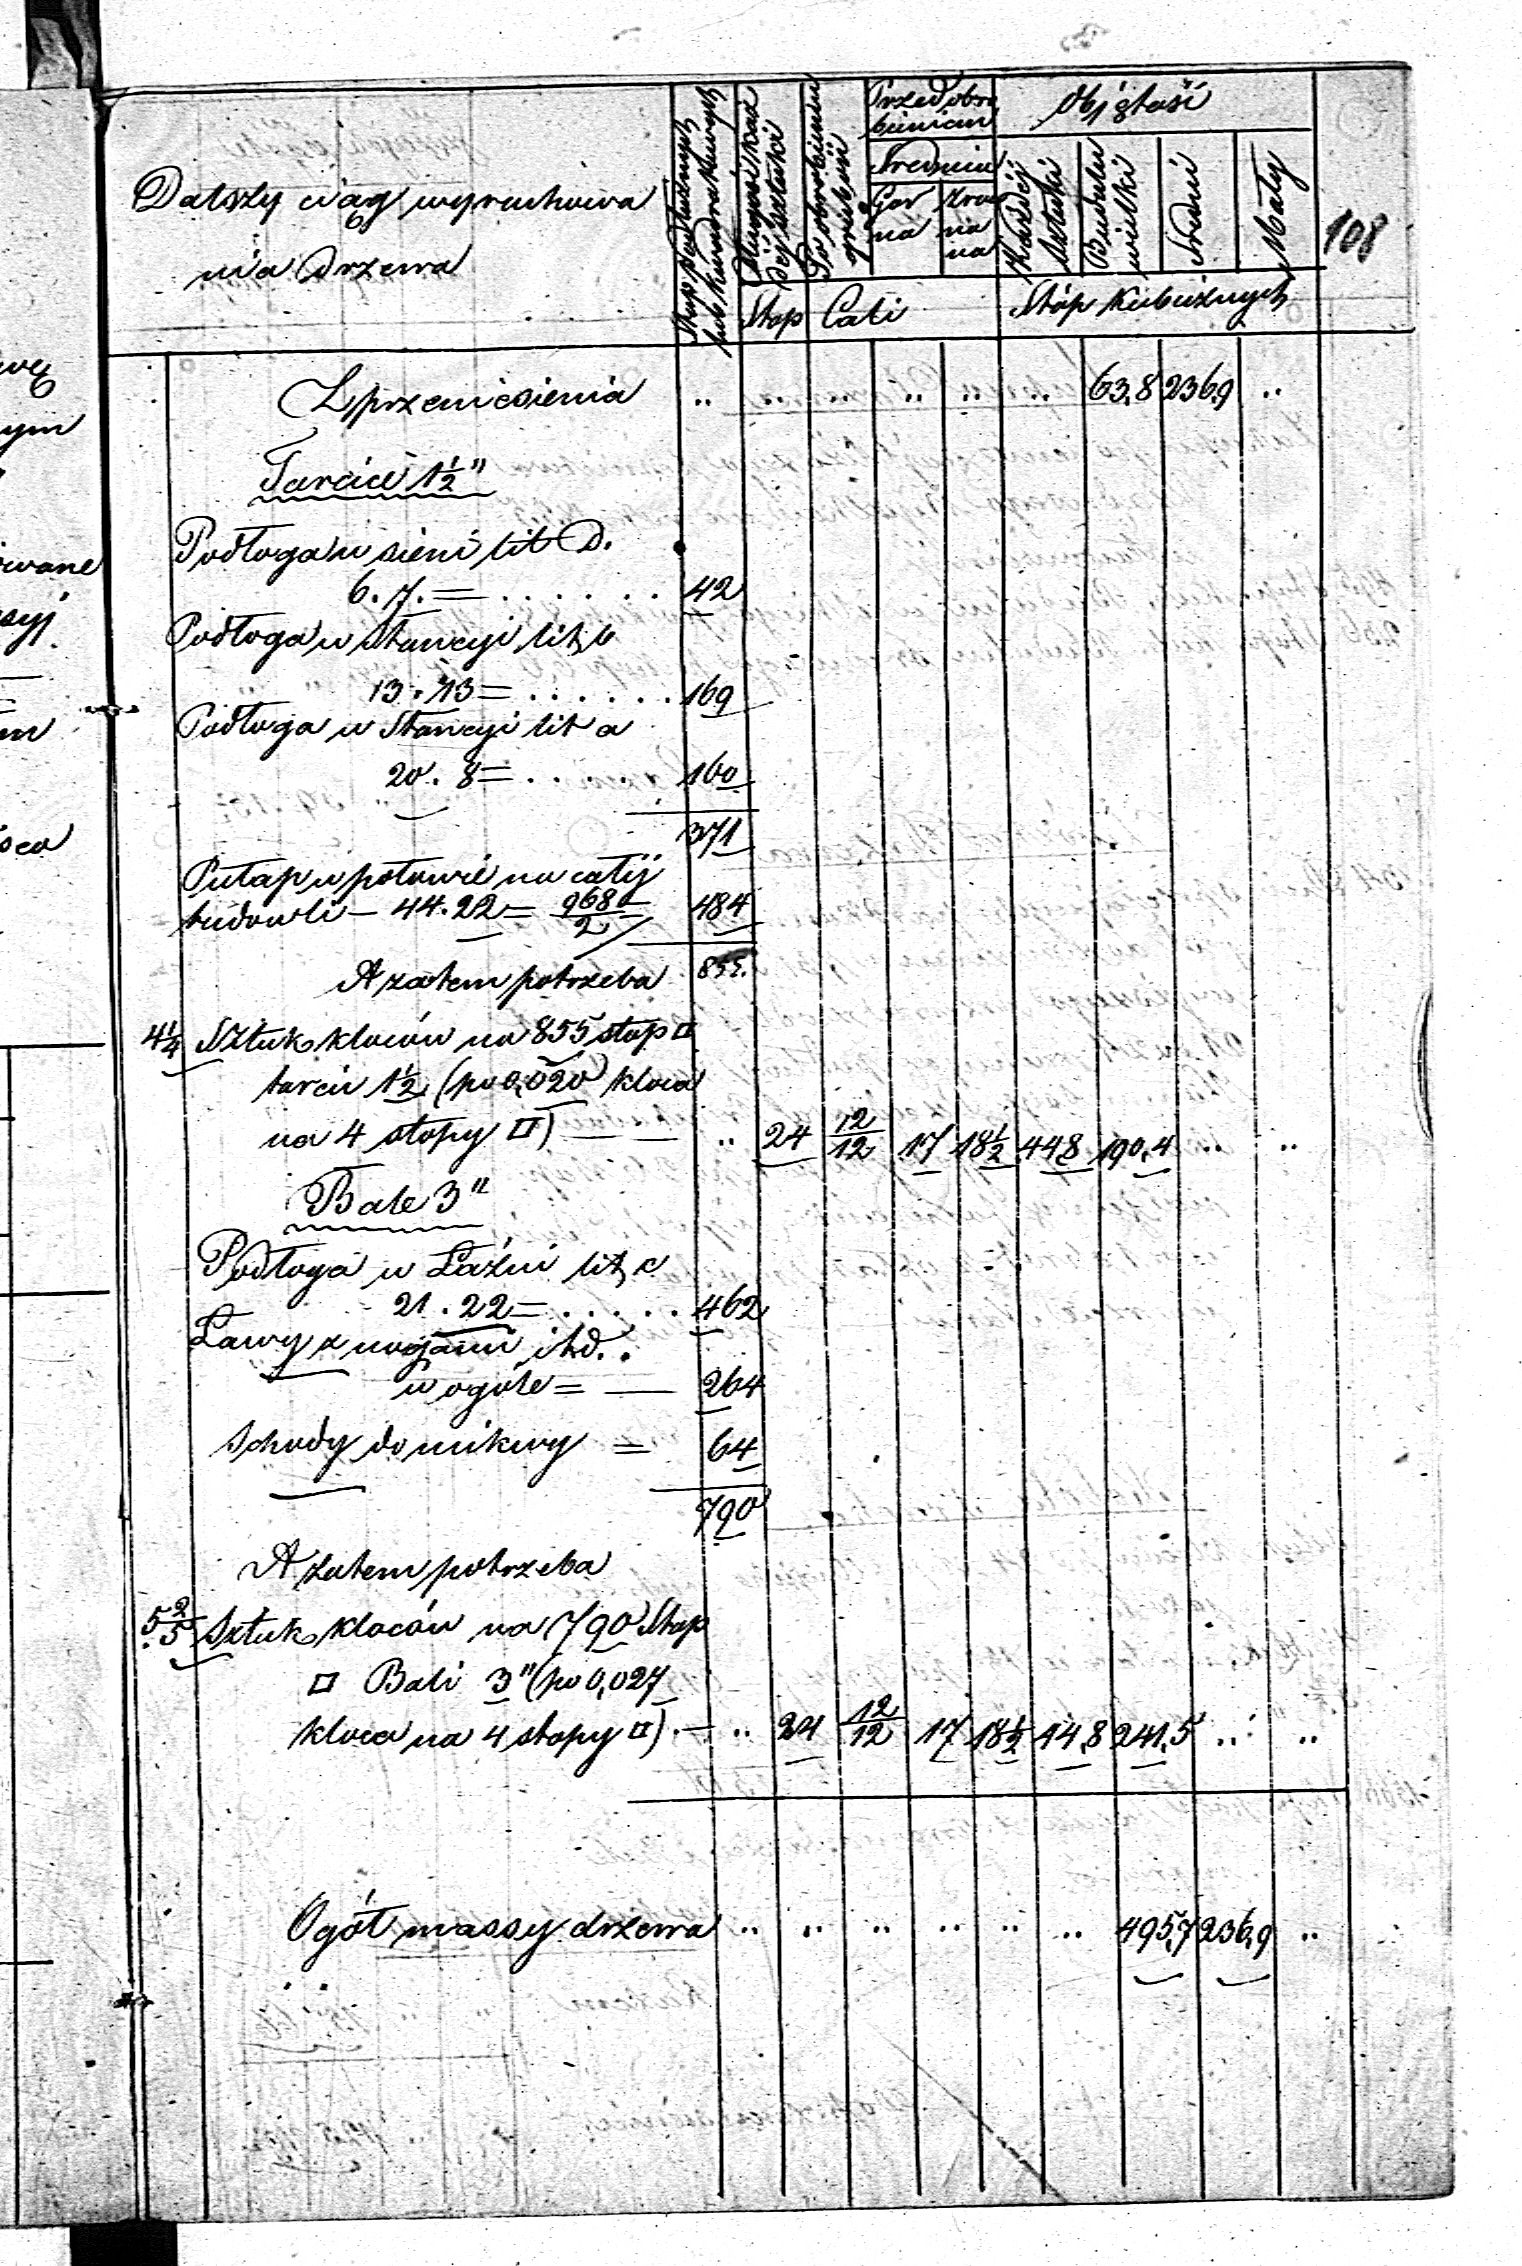 108
Dalszy ciąg wyrachowa
nia drzewa
Stóp podłużnych
lub kwadratowych
Długość każ
dej sztuki
Po obrobieniu
grubość
Przed obro
bieniem
Średnica
Gór
na
Krag
na
Objętość
Każdej
sztuki
Budulcu
wielki
Średni
Mały
Stop Cali Stóp Kubicznych
Z przeniesienia .. .. .. .. .. .. 63,8 236,9 ..
Tarcice 1½"
Podłoga w sieni lit D.
6. 7. = . . . . . . 42
Podłoga w stancyi lit b
13. 13 = . . . . . . 169
Podłoga w Stancyi lit a
20. 8 = . . . . . 160
371
Pułap w połowie na całej
budowli — 44. 22 = 968/2 484
A zatem potrzeba 855.
4¼ Sztuk kloców na 855 stop □
tarcic 1½ (po 0,020 kloca
na 4 stopy □) — — .. 24 12/12 17 18½ 44,8 190,4 .. ..
Bale 3"
Podłoga w Łaźni lit c
21. 22 = . . . . . 462
Ławy z nogami itd..
w ogóle = — 264
Schody do mikwy = 64
790
A zatem potrzeba
5 2/5 Sztuk kloców na 790 Stop
□ Bali 3" (po 0,027
kloca na 4 stopy □). — .. 24 12/12 17 18½ 44,8 241,5 .. ..
Ogół massy drzewa .. .. .. .. .. .. 495,7 236,9 ..